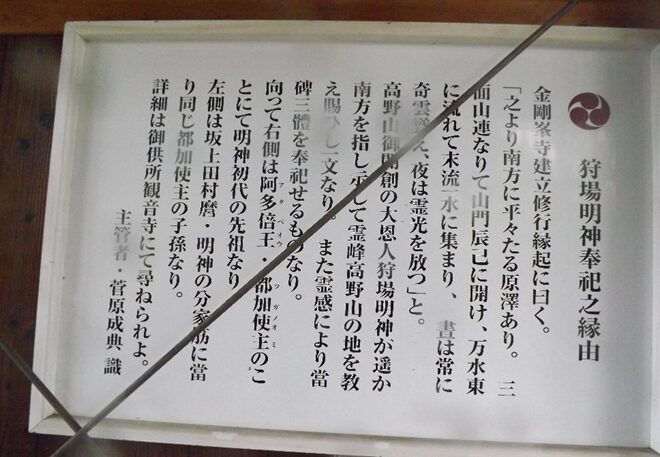 狩場明神奉祀之縁由
金剛峯寺建立修行縁起に曰く。
「之より南方に平々たる原澤あり。三
面山連なりて山門辰己に開け、万水東
に流れて末流一水に集まり、晝は常に
奇雲え、夜は霊光を放つ」と。
高野山御開創の大恩人狩場明神が遥か
南方を指し示して霊峰高野山の地を教
え賜ひし一文なり。また霊感により當
碑三體を奉祀せるものなり。
向って右側は阿多倍王・都加使主のこ
アタベオウ ツガノオミ
とにて明神初代の先祖なり
左側は坂上田村麿・明神の分家筋に當
り同じ都加使主の子孫なり。
詳細は御供所観音寺にて尋ねられよ。
主管者・菅原成典 識